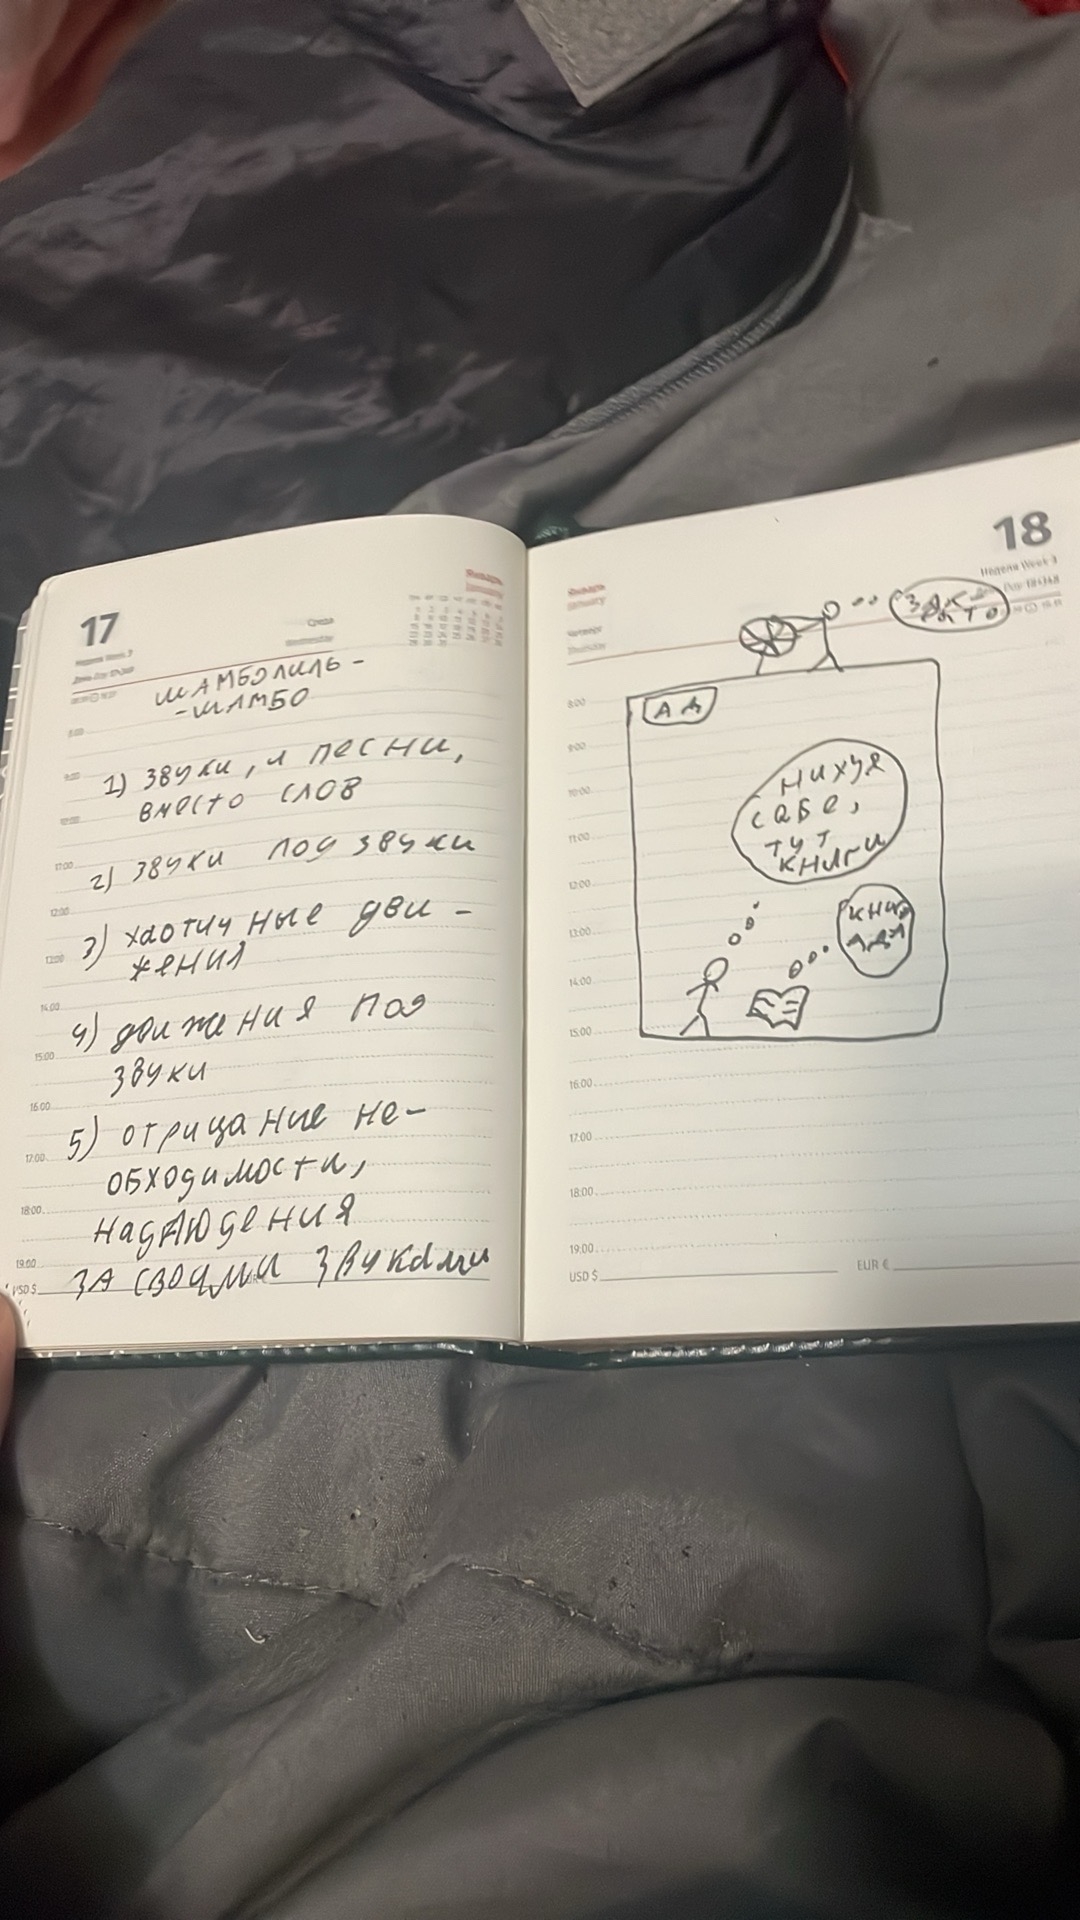 17
Среда
Wednesday
Январь
January
ШАМБОЛИЛЬ-
-ШАМБО
1) ЗВУКИ, И ПЕСНИ,
ВМЕСТО СЛОВ
2) ЗВУКИ ПОД ЗВУКИ
3) ХАОТИЧНЫЕ ДВИ-
ЖЕНИЯ
4) ДВИЖЕНИЯ ПОД
ЗВУКИ
5) ОТРИЦАНИЕ НЕ-
ОБХОДИМОСТИ,
НАДЛЮДЕНИЯ
ЗА СВОИМИ ЗВУКАМИ
8:00
9:00
10:00
11:00
12:00
13:00
14:00
15:00
16:00
17:00
18:00
19:00
USD $
18
Неделя Week 3
Январь
January
Четверг
Thursday
АД
НИХУЯ
СЕБЕ,
ТУТ
КНИГИ
КНИГ
АДА
8:00
9:00
10:00
11:00
12:00
13:00
14:00
15:00
16:00
17:00
18:00
19:00
USD $
EUR €